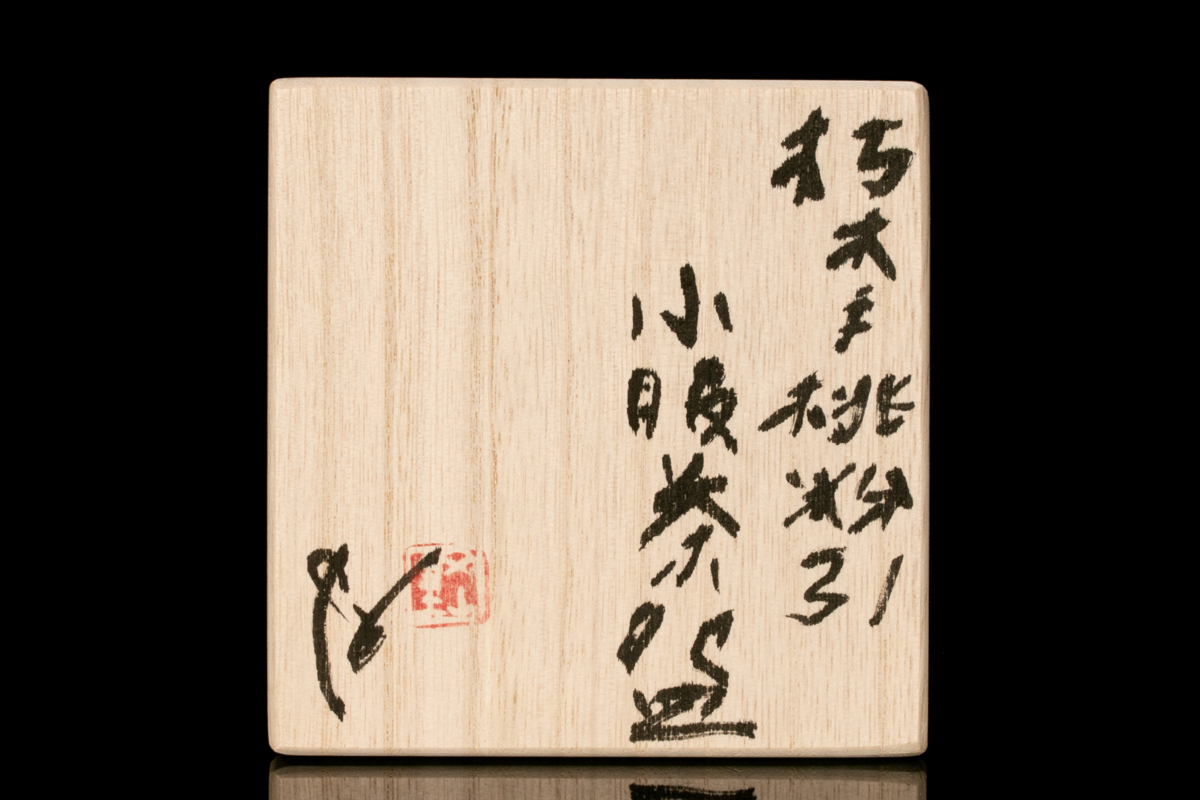 朽木手桃粉引
小服茶盌